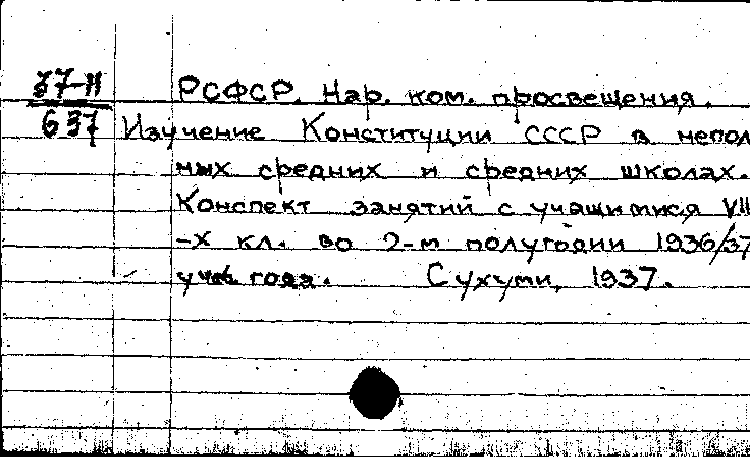 37-II РСФСР. Нар. ком. просвещения.
637 Изучение Конституции СССР в непол
ных средних и средних школах.
Конспект занятий с учащимися VII
-X кл. во 2-м полугодии 1936/37
учеб. года. Сухуми, 1937.